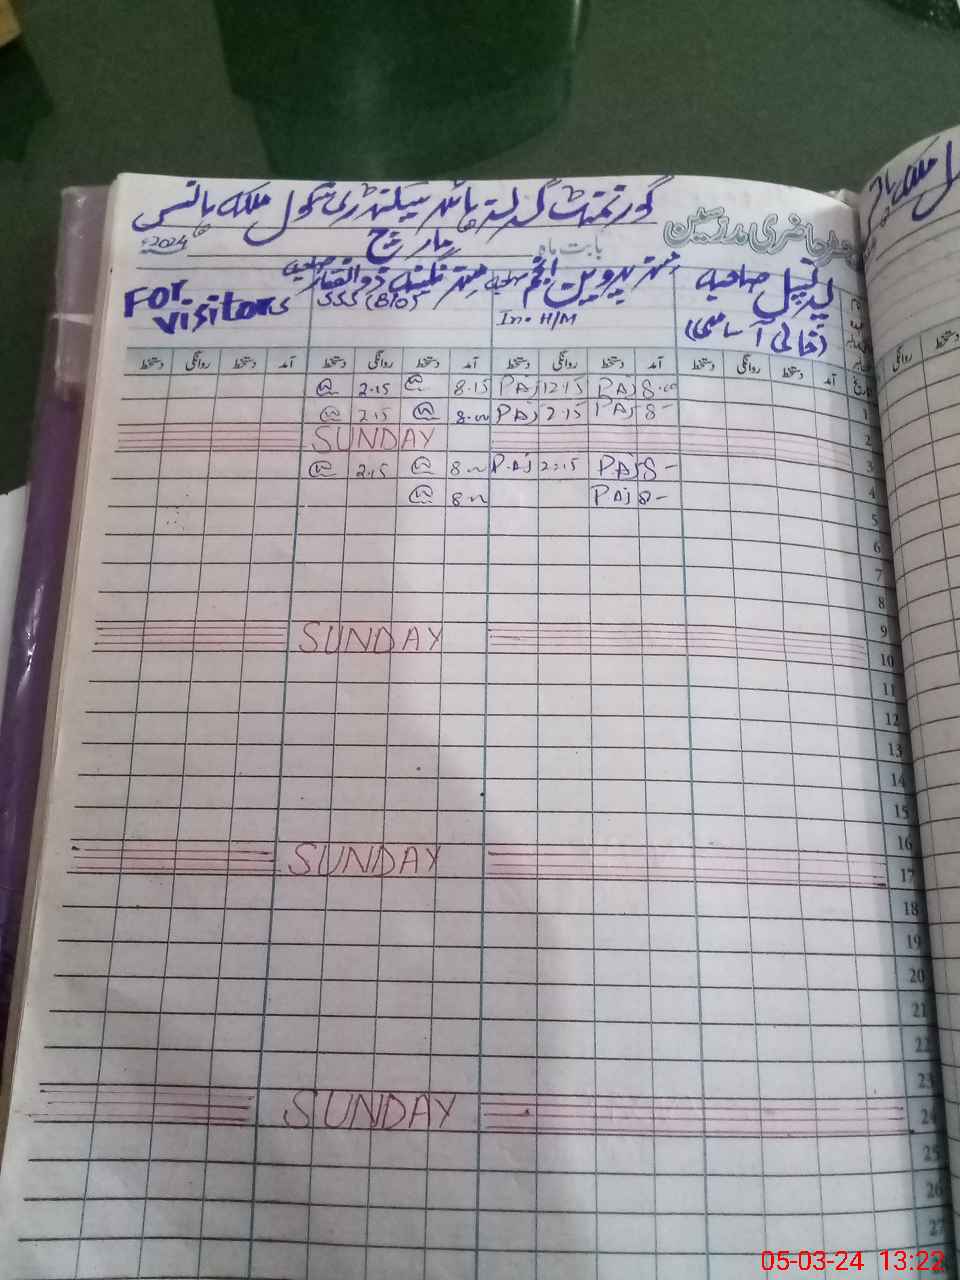 گورنمنٹ گرلز ہائر سیکنڈری سکول ملکہ ہانس
رجسٹر حاضری مدرسین بابت ماہ مارچ 2024ء
پرنسپل صاحبہ
(خالی آسامی)
مسز پروین انجم صاحبہ
In. H/M
مسز نگینہ ذوالفقار صاحبہ
SSS (BIO)
For
visitors
آمد دستخط روانگی دستخط آمد دستخط روانگی دستخط آمد دستخط روانگی دستخط آمد دستخط روانگی دستخط
1 8.00 PAj 12.15 PAj 8.15 2.15
2 8- PAj 2.15 PAj 8.00 2.15
3 SUNDAY
4 8- PAj 2:15 PAj 8.00 2.15
5 8- PAj 8.00
6
7
8
9
10 SUNDAY
11
12
13
14
15
16
17 SUNDAY
18
19
20
21
22
23
24 SUNDAY
25
26
27
05-03-24 13:22